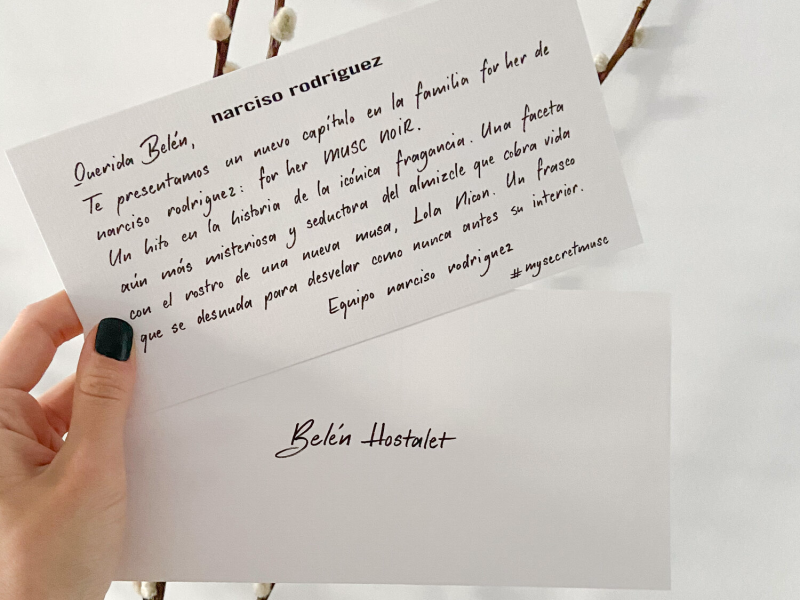 narciso rodriguez
Querida Belén,
Te presentamos un nuevo capítulo en la familia for her de
narciso rodriguez: for her MUSC NOIR.
Un hito en la historia de la icónica fragancia. Una faceta
aún más misteriosa y seductora del almizcle que cobra vida
con el rostro de una nueva musa, Lola Nicon. Un frasco
que se desnuda para desvelar como nunca antes su interior.
Equipo narciso rodriguez
#mysecretmusc
Belén Hostalet